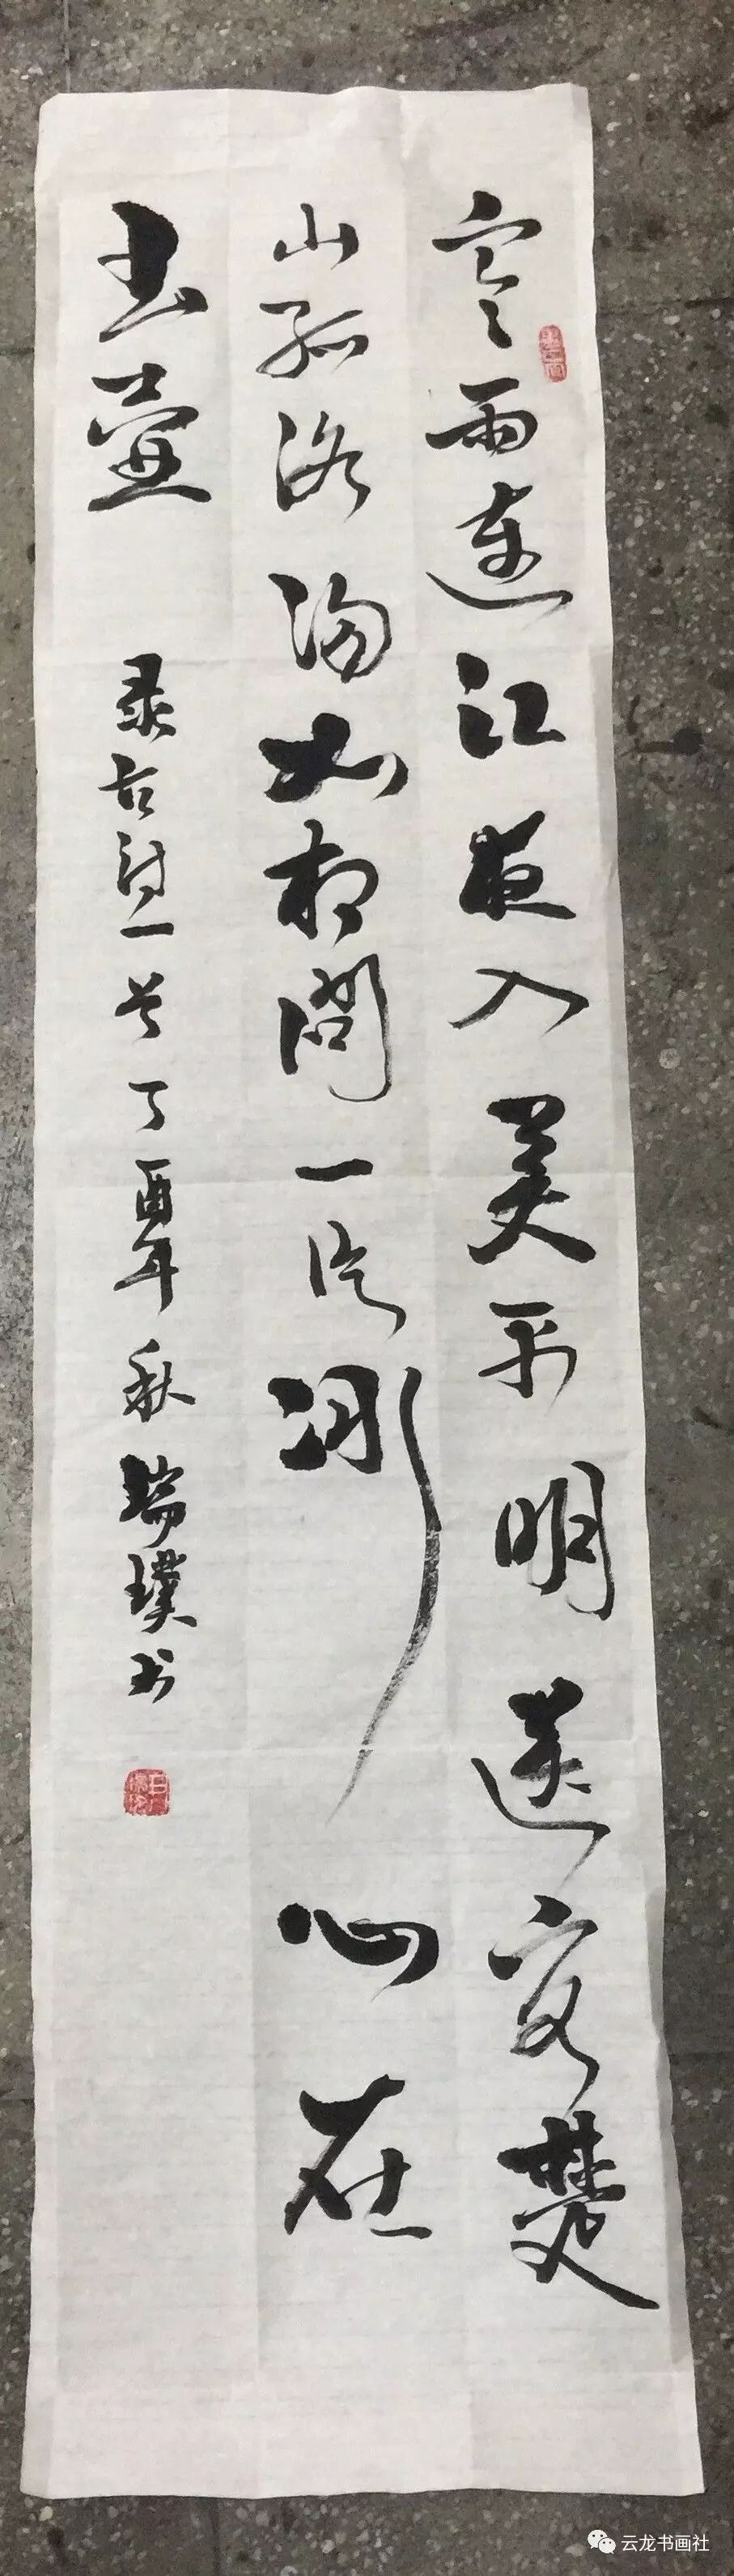 寒雨连江夜入吴平明送客楚
山孤洛阳如相问一片冰心在
玉壶 录古诗一首丁酉年秋瑞璞书
云龙书画社